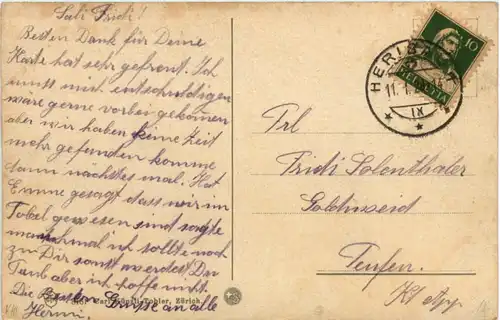 Sali Fridi!
Besten Dank für Deine
Karte hat sehr gefreut. Ich
mußt mich entschuldigen
wäre gerne vorbei gekomen
aber wir haben keine Zeit
mehr gefunden komme
dann nächstes mal. Hat
Emme gesagt dass wir im
Tobel gewesen sind sagte
manchmal ich sollte noch
zu Dir sonst werdest Du
Taub aber ich hoffe nicht.
Die Besten Grüsse an alle
Hermi.
Carl Künzli-Tobler, Zürich.
10
HELVETIA
HERISAU
11.
IX
Frl
Fridi Solenthaler
Goldswerd
Teufen.
Kt App